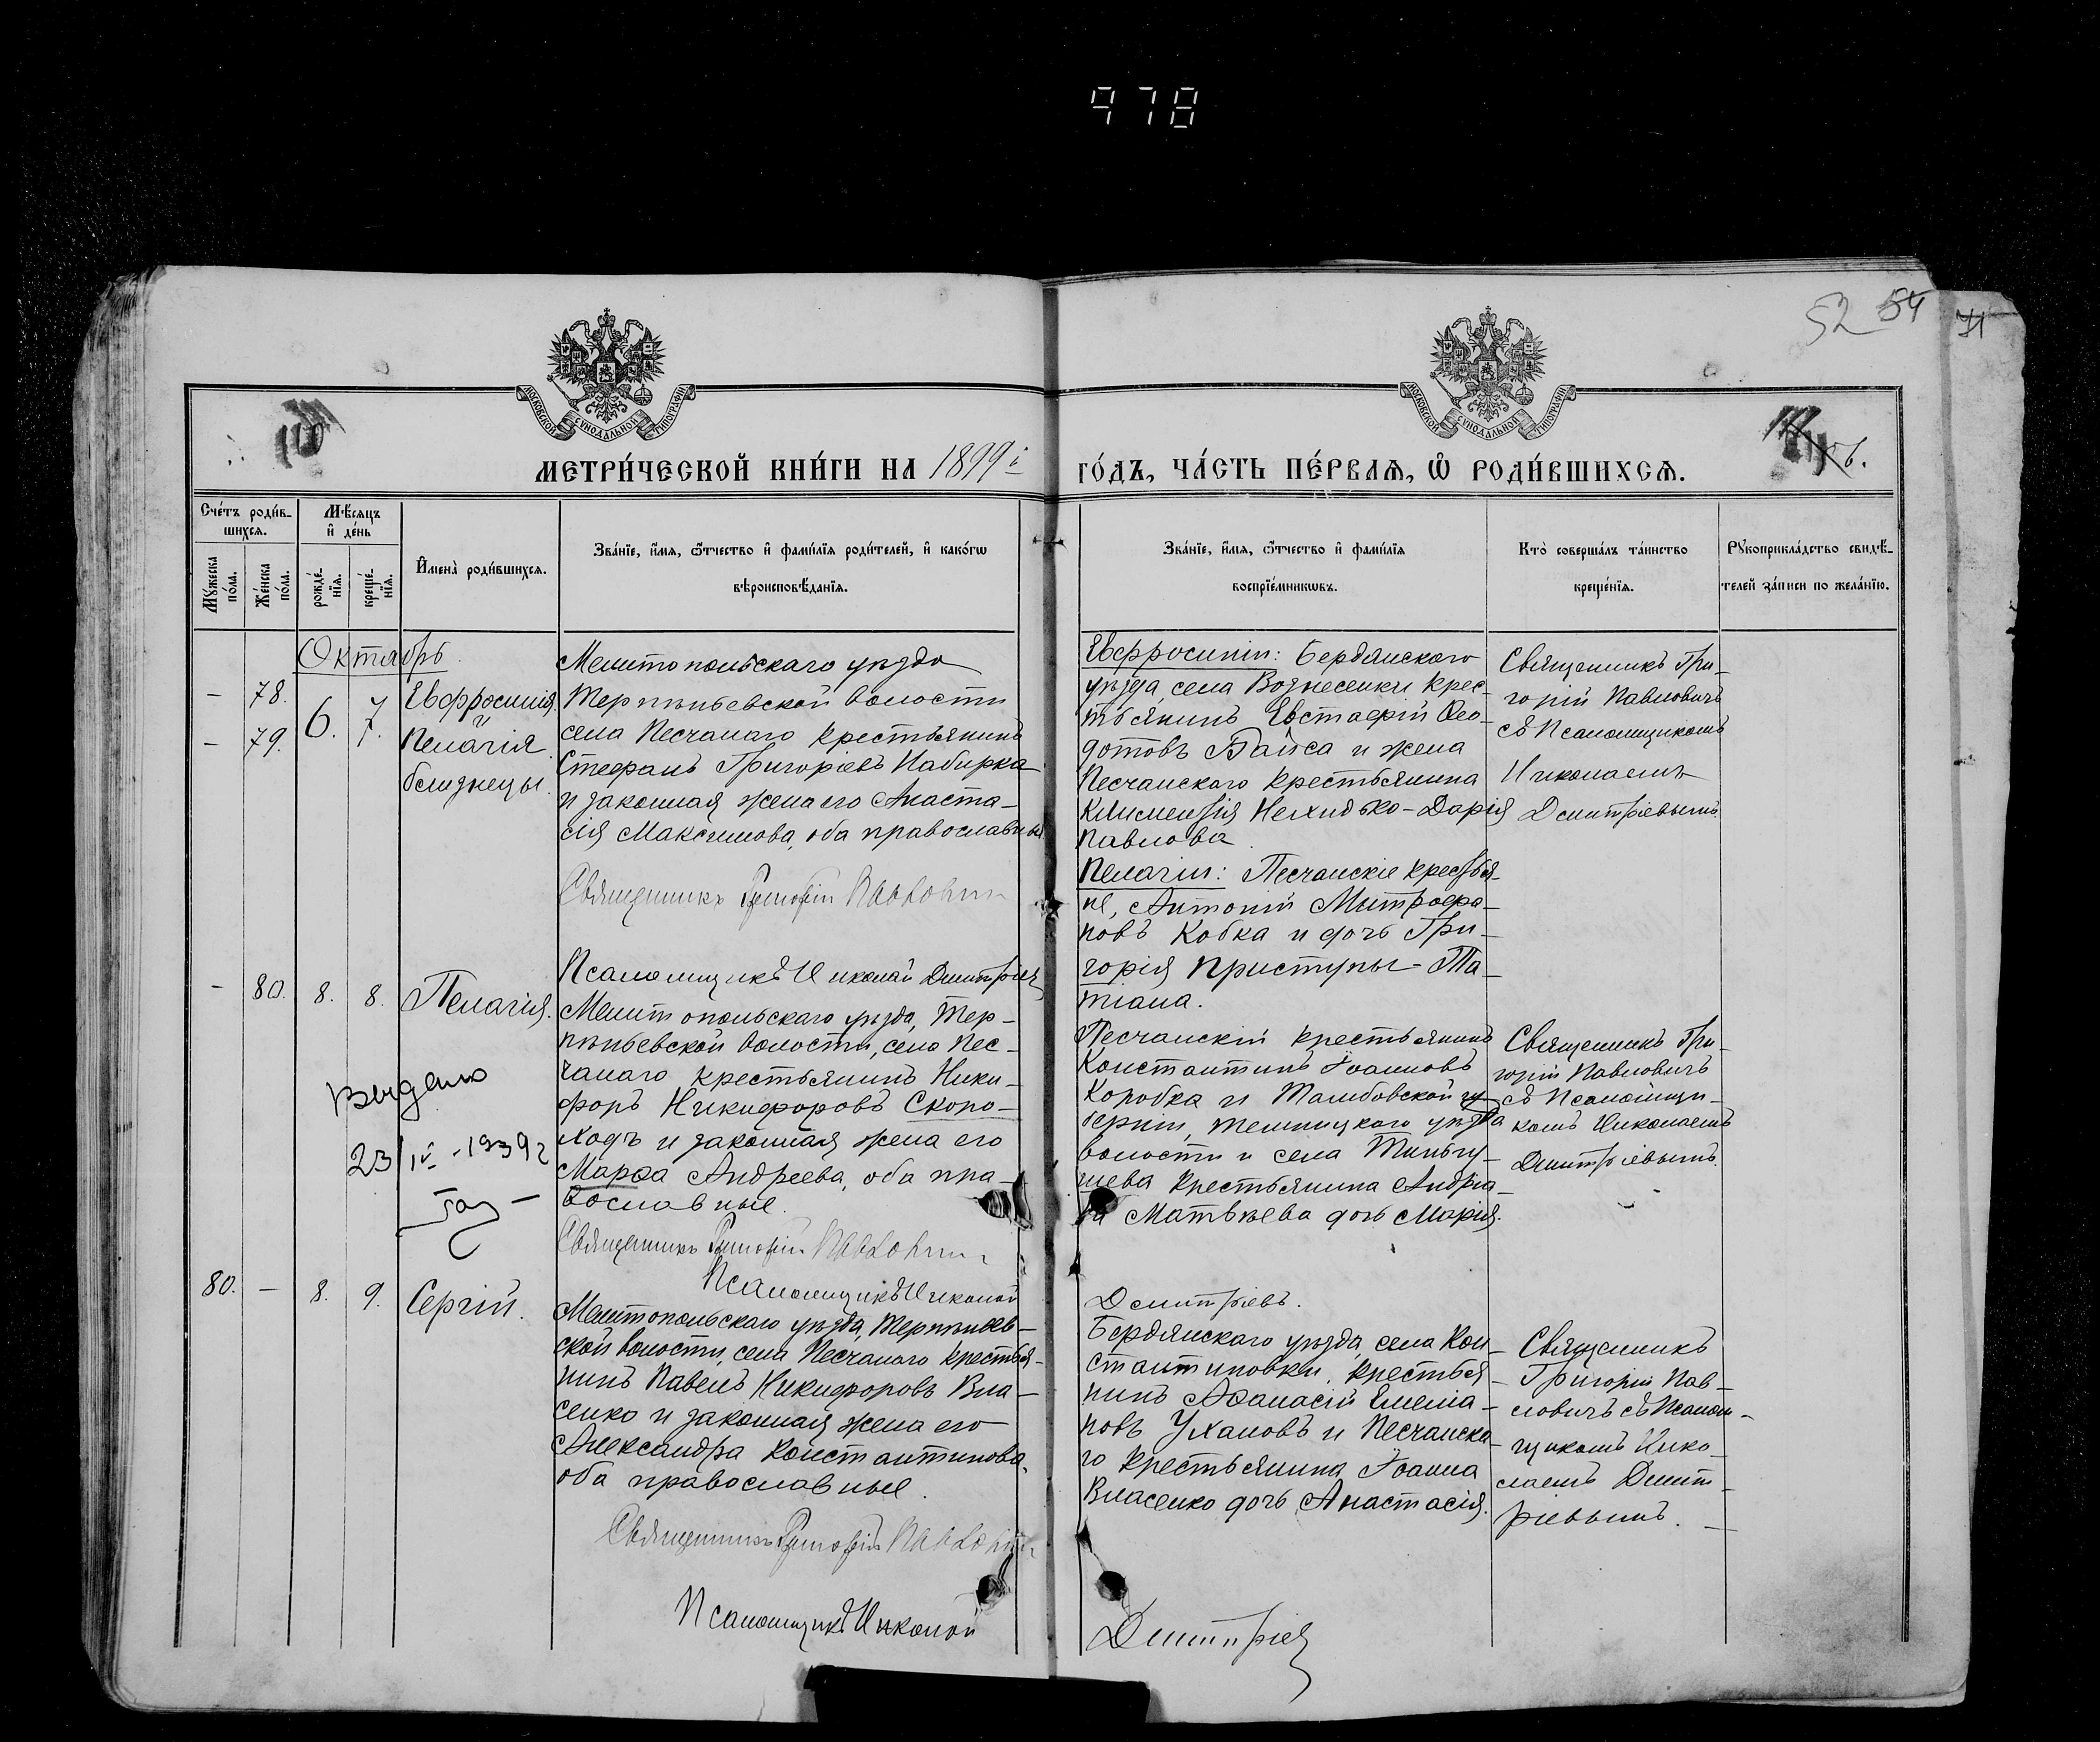 978
52 54 71
110
МЕТРИ́ЧЕСКОЙ КНИ́ГИ НА 1899 й ГО́ДЪ, ЧА́СТЬ ПЕ́РВАѦ, Ѡ҆ РОДИ́ВШИХСѦ.
Сче́тъ роди́в-
шихсѧ.
Мꙋ́жеска по́ла.
Же́нска по́ла.
Мѣ́сѧцъ
и҆ де́нь
рожде́-
нїѧ.
креще́-
нїѧ.
И҆мена̀ роди́вшихсѧ.
Зва́нїе, и҆́мѧ, ѻ҆́тчество и҆ фами́лїѧ роди́телей, и҆ како́гѡ
вѣроисповѣ́данїѧ.
Зва́нїе, и҆́мѧ, ѻ҆́тчество и҆ фами́лїѧ
воспрїе́мникѡвъ.
Кто̀ соверша́лъ та́инство
креще́нїѧ.
Рꙋкоприкла́дство свидѣ́-
телей за́писи по жела́нїю.
Октябрь
– 78.
– 79.
6. 7.
Евфросинія
и
Пелагія
близнецы.
Мелитопольскаго уѣзда
Терпѣньевской волости
села Песчанаго крестьянинъ
Стефанъ Григоріевъ Набирка
и законная жена его Анаста-
сія Максимова, оба православные
Священникъ Григорій Павловичъ
Псаломщикъ Николай Дмитріев
Евфросиніи: Бердянскаго
уѣзда, села Вознесенки крес-
тьянинъ Евстафій Ѳео-
дотовъ Байса и жена
Песчанскаго крестьянина
Климентія Нехидько-Дарія
Павлова.
Пелагіи: Песчанскіе крестья-
не, Антоній Митрофа-
новъ Кобка и дочь Гри-
горія Приступы-Та-
тіана.
Священникъ Гри-
горій Павловичъ
съ Псаломщикомъ
Николаемъ
Дмитріевымъ
– 80. 8. 8. Пелагія.
Выдано
23/IV - 1939 г
Мелитопольскаго уѣзда, Тер-
пѣньевской волости, села Пес-
чанаго крестьянинъ Ники-
форъ Никифоровъ Скоро-
ходъ и законная жена его
Марѳа Андреева, оба пра-
вославные.
Священникъ Григорій Павловичъ
Псаломщикъ Николай Дмитріевъ.
Песчанскій крестьянинъ
Константинъ Іоанновъ
Коробка и Тамбовской гу-
берніи, Темницкаго уѣзда
волости и села
крестьянина Андріа-
на Матвѣева дочь Марія.
Священникъ Гри-
горій Павловичъ
съ Псаломщи-
комъ Николаемъ
Дмитріевымъ.
80. – 8. 9. Сергій.
Мелитопольскаго уѣзда, Терпѣньев-
ской волости, села Песчанаго крестья-
нинъ Павелъ Никифоровъ Вла-
сенко и законная жена его
Александра Константинова,
оба православные.
Священникъ Григорій Павловичъ
Псаломщикъ Николай Дмитріев
Бердянскаго уѣзда, села Кон-
стантиновки, крестья-
нинъ Аѳанасій Емелiа-
новъ Ухановъ и Песчанска-
го крестьянина Іоанна
Власенко дочь Анастасія.
Священникъ
Григорій Пав-
ловичъ съ Псалом-
щикомъ Нико-
лаемъ Дмит-
ріевымъ.